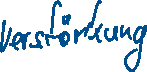 Verstärkung